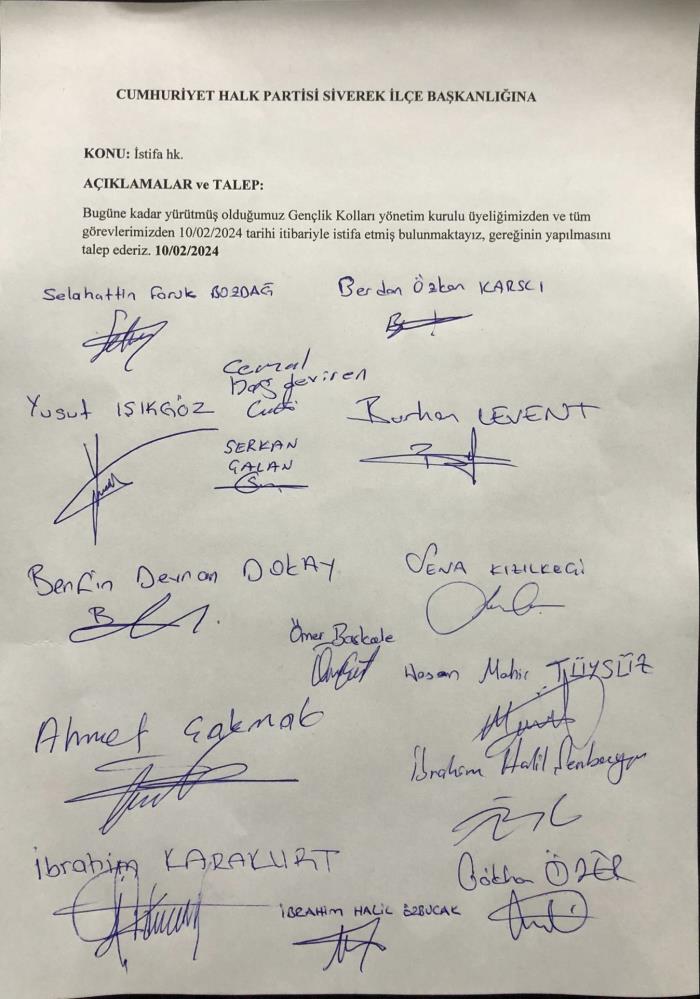 CUMHURİYET HALK PARTİSİ SİVEREK İLÇE BAŞKANLIĞINA
KONU: İstifa hk.
AÇIKLAMALAR ve TALEP:
Bugüne kadar yürütmüş olduğumuz Gençlik Kolları yönetim kurulu üyeliğimizden ve tüm
görevlerimizden 10/02/2024 tarihi itibariyle istifa etmiş bulunmaktayız, gereğinin yapılmasını
talep ederiz. 10/02/2024
Selahattin Faruk BOZDAĞ
Berdan Özkan KARSCI
Cemal
Baş deviren
Yusuf IŞIKGÖZ
Burhan LEVENT
SERKAN
GALAN
Benfin Devran DOKAY
SENA KIZILKEÇİ
Ömer Baskale
Hasan Mahir TÜYSÜZ
Ahmet Çakmak
İbrahim Halil
İbrahim KARAKURT
Gökhan ÖZER
İBRAHİM HALİL ÖZBUCAK